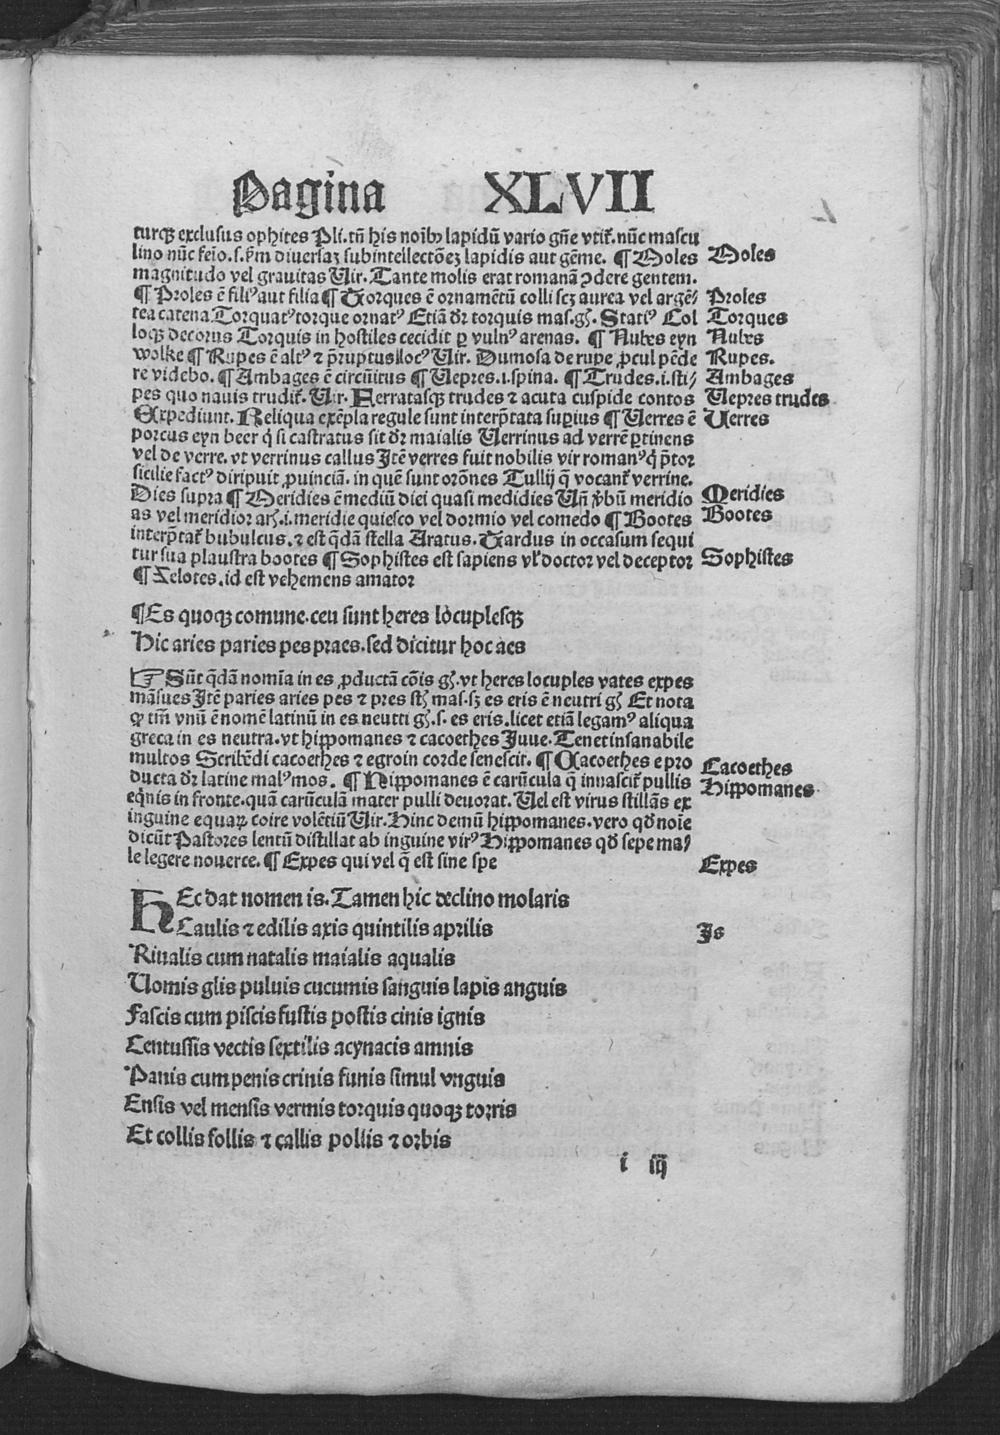 Pagina XLVII
turqꝫ exclusus ophites Pli. tñ his noĩbꝰ lapidũ vario gñe vtit᷑. nũc mascu
lino nũc feĩo. s. ẜm diuersaꝫ subintellectõeꝫ lapidis aut gẽme. ¶ Moles
magnitudo vel grauitas Uir. Tante molis erat romanã ꝯdere gentem.
¶ Proles ẽ filiꝰ aut filia ¶ Torques ẽ ornamẽtũ colli scꝫ aurea vel argẽ⸗
tea catena Torquatꝰ torque ornatꝰ Etiã dr̃ torquis mas. gñ. Statiꝰ Col
loqꝫ decorus Torquis in hostiles cecidit ꝑ vulnꝰ arenas. ¶ Nubes eyn
wolke ¶ Rupes ẽ altꝰ ⁊ p̃ruptus locꝰ Uir. Dumosa de rupe ꝓcul pẽde
re videbo. ¶ Ambages ẽ circũitus ¶ Uepres .i. spina. ¶ Trudes .i. sti⸗
pes quo nauis trudit᷑. Uir. Ferratasqꝫ trudes ⁊ acuta cuspide contos
Expediunt. Reliqua exẽpla regule sunt interp̃tata suꝑius ¶ Uerres ẽ
porcus eyn beer q̇ si castratus sit dr̃ maialis Uerrinus ad verrẽ ꝑtinens
vel de verre. vt verrinus callus Itẽ verres fuit nobilis vir romanꝰ q̇ p̃tor
sicilie factꝰ diripuit ꝓuinciã. in quẽ sunt orõnes Tullij q̃ vocant᷑ verrine.
Dies supra ¶ Meridies ẽ mediũ diei quasi medidies Uñ v̾bũ meridio
as vel meridior aris .i. meridie quiesco vel dormio vel comedo ¶ Bootes
interp̃tat᷑ bubulcus. ⁊ est q̃dã stella Aratus. Tardus in occasum sequi
tur sua plaustra bootes ¶ Sophistes est sapiens vl̾ doctor vel deceptor
¶ Zelotes. id est vehemens amator
¶ Es quoqꝫ comune. ceu sunt heres locuplesqꝫ
Hic aries paries pes praes. sed dicitur hoc aes
☞ Sũt q̃dã nomĩa in es ꝓductã cõis gñ. vt heres locuples vates expes
mãsues Itẽ paries aries pes ⁊ pres st̃ mas. sꝫ es eris ẽ neutri gñ Et nota
qꝫ tm̃ vnũ ẽ nomẽ latinũ in es neutri gñ. s. es eris. licet etiã legamꝰ aliqua
greca in es neutra. vt hippomanes ⁊ cacoethes Juue. Tenet insanabile
multos Scribẽdi cacoethes ⁊ egro in corde senescit. ¶ Cacoethes e pro
ducta dr̃ latine malꝰ mos. ¶ Hippomanes ẽ carũcula q̃ innascit᷑ pullis
eq̇nis in fronte. quã carũculã mater pulli deuorat. Uel est virus stillãs ex
inguine equaꝝ coire volẽtiũ Uir. Hinc demũ hippomanes. vero qd̾ noĩe
dicũt Pastores lentũ distillat ab inguine virꝰ Hippomanes qd̾ sepe ma⸗
le legere nouerce. ¶ Expes qui vel q̃ est sine spe
HEc dat nomen is. Tamen hic declino molaris
Caulis ⁊ edilis axis quintilis aprilis
Riualis cum natalis maialis aqualis
Uomis glis puluis cucumis sanguis lapis anguis
Fascis cum piscis fustis postis cinis ignis
Centussis vectis sextilis acynacis amnis
Panis cum penis crinis funis simul vnguis
Ensis vel mensis vermis torquis quoqꝫ torris
Et collis follis ⁊ callis pollis ⁊ orbis
i iij
Moles
Proles
Torques
Nubes
Rupes.
Ambages
Uepres trudes
Uerres
Meridies
Bootes
Sophistes
Cacoethes
Hippomanes
Expes
Is